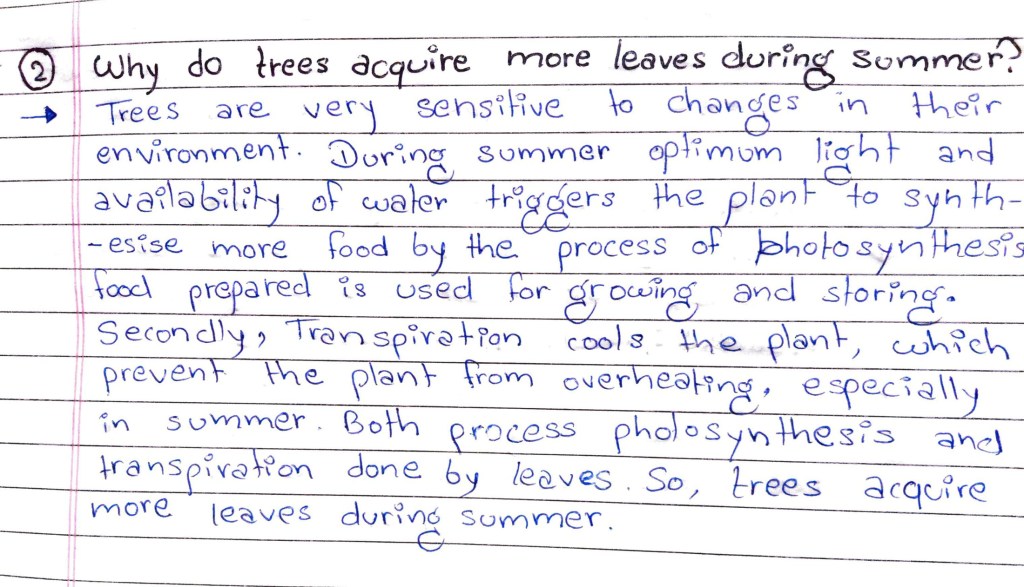 ② Why do trees acquire more leaves during summer?
→ Trees are very sensitive to changes in their
environment. During summer optimum light and
availability of water triggers the plant to synth-
-esise more food by the process of photosynthesis
food prepared is used for growing and storing.
Secondly, Transpiration cools the plant, which
prevent the plant from overheating, especially
in summer. Both process photosynthesis and
transpiration done by leaves. So, trees acquire
more leaves during summer.